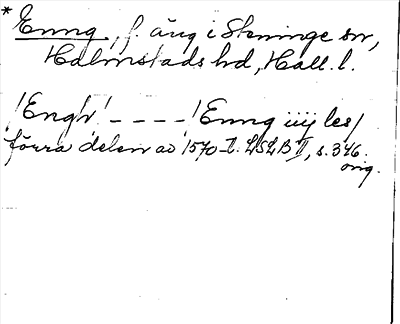 * Enng, f. äng i Steninge sn,
Halmstads hd, Hall. l.
/Engh/ - - - - /Enng iiij les/
förra delen av 1570-t. LSLB II, s. 346.
orig.